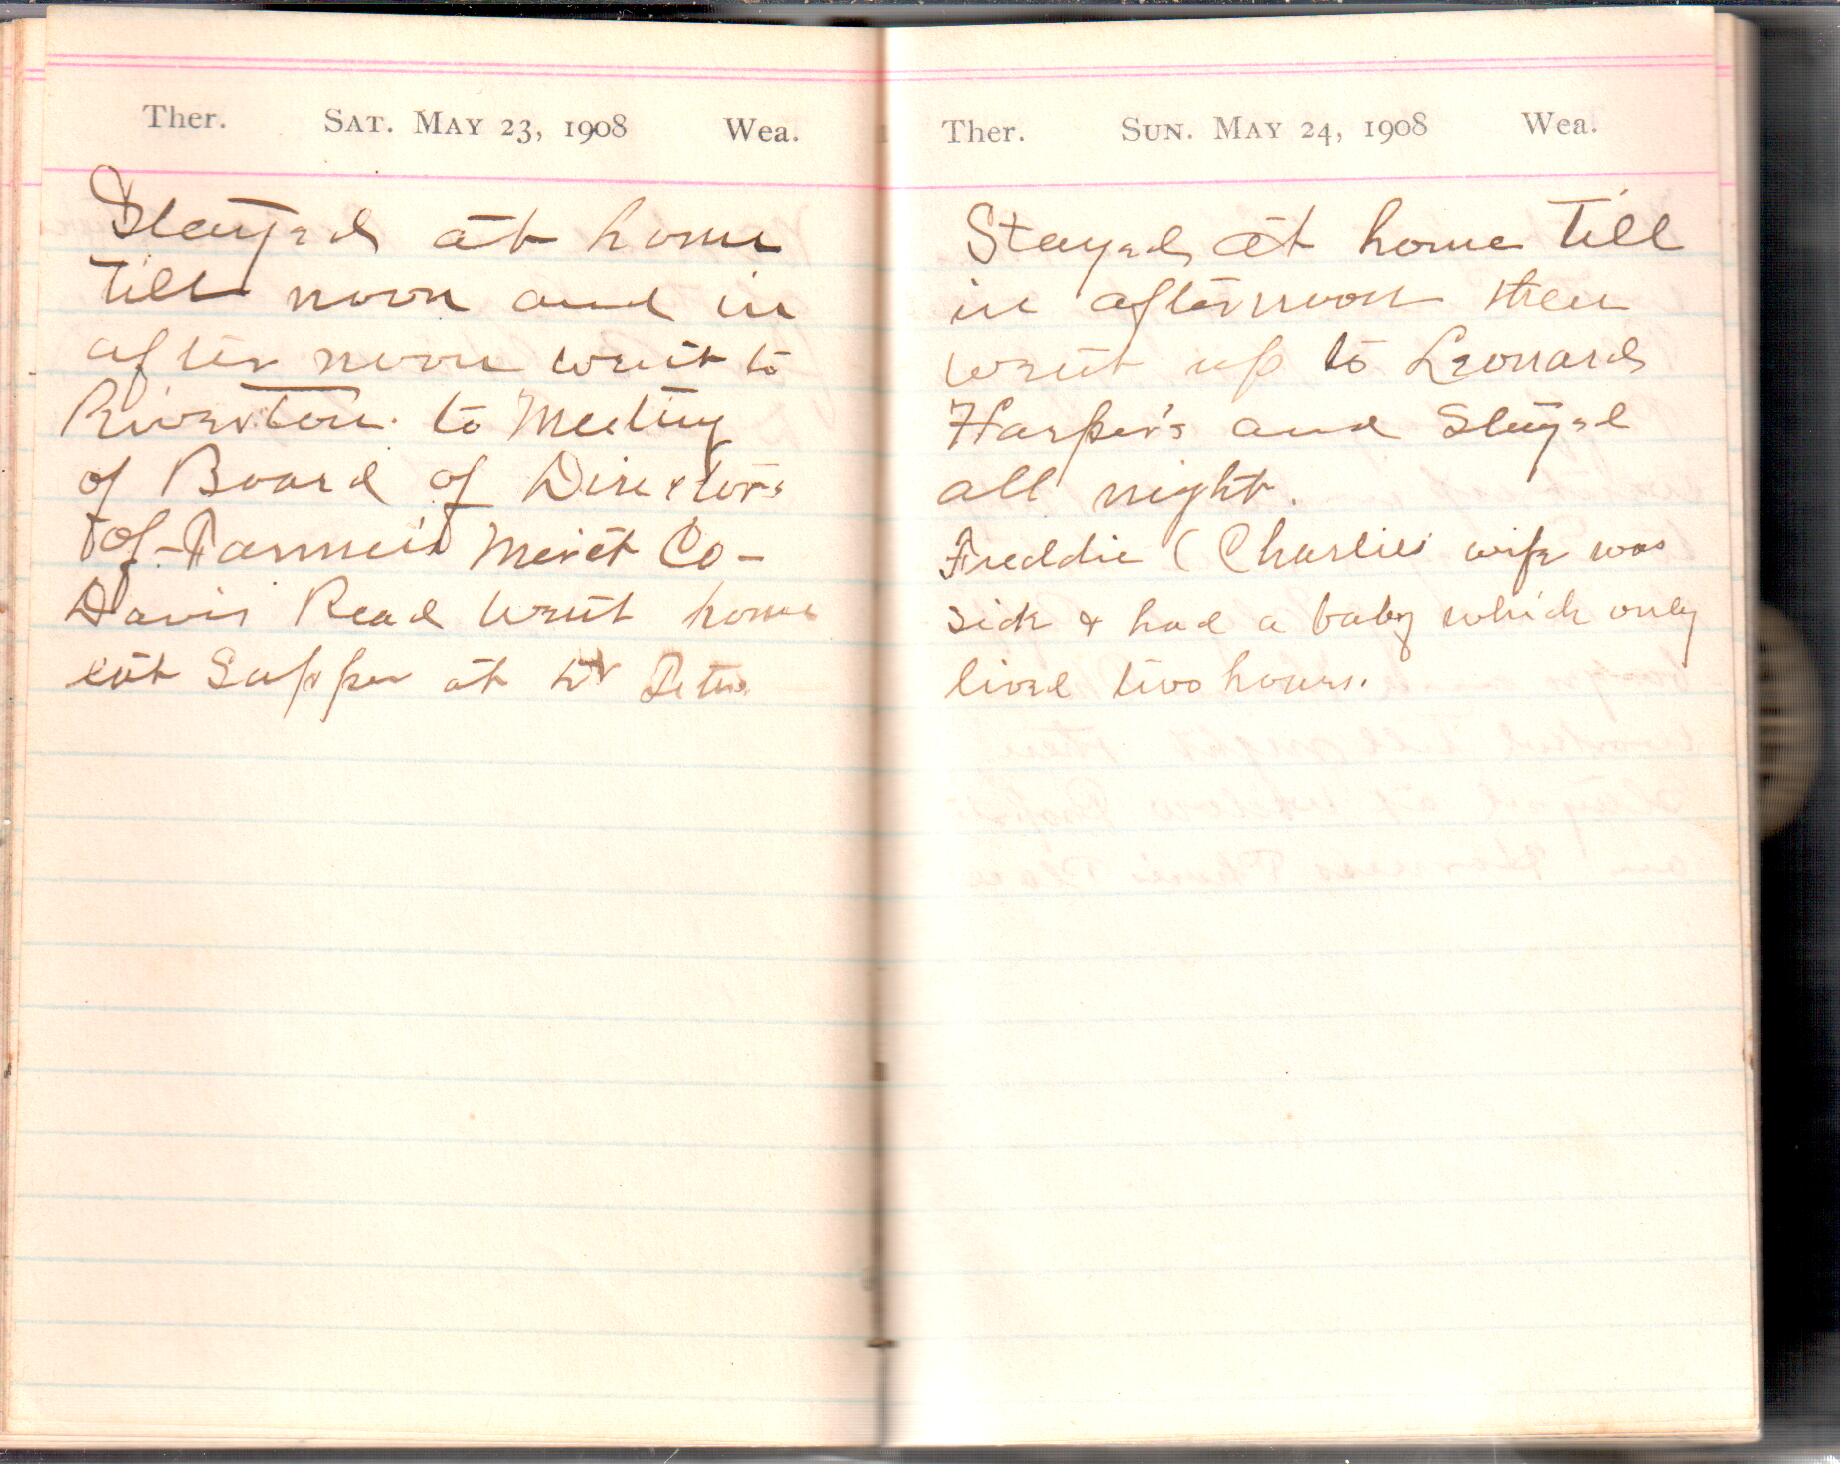 Ther. SAT. MAY 23, 1908 Wea.
Stayed at home
till noon and in
after noon went to
Riverton. to Meeting
of Board of Directors
of Farmer's Merct Co-
Davis Read went home
eat Supper at
Ther. SUN. MAY 24, 1908 Wea.
Stayed at home till
in afternoon then
went up to Leonard
Harper's and Stayed
all night.
Freddie ( Charlie's wife was
sick + had a baby which only
lived two hours.